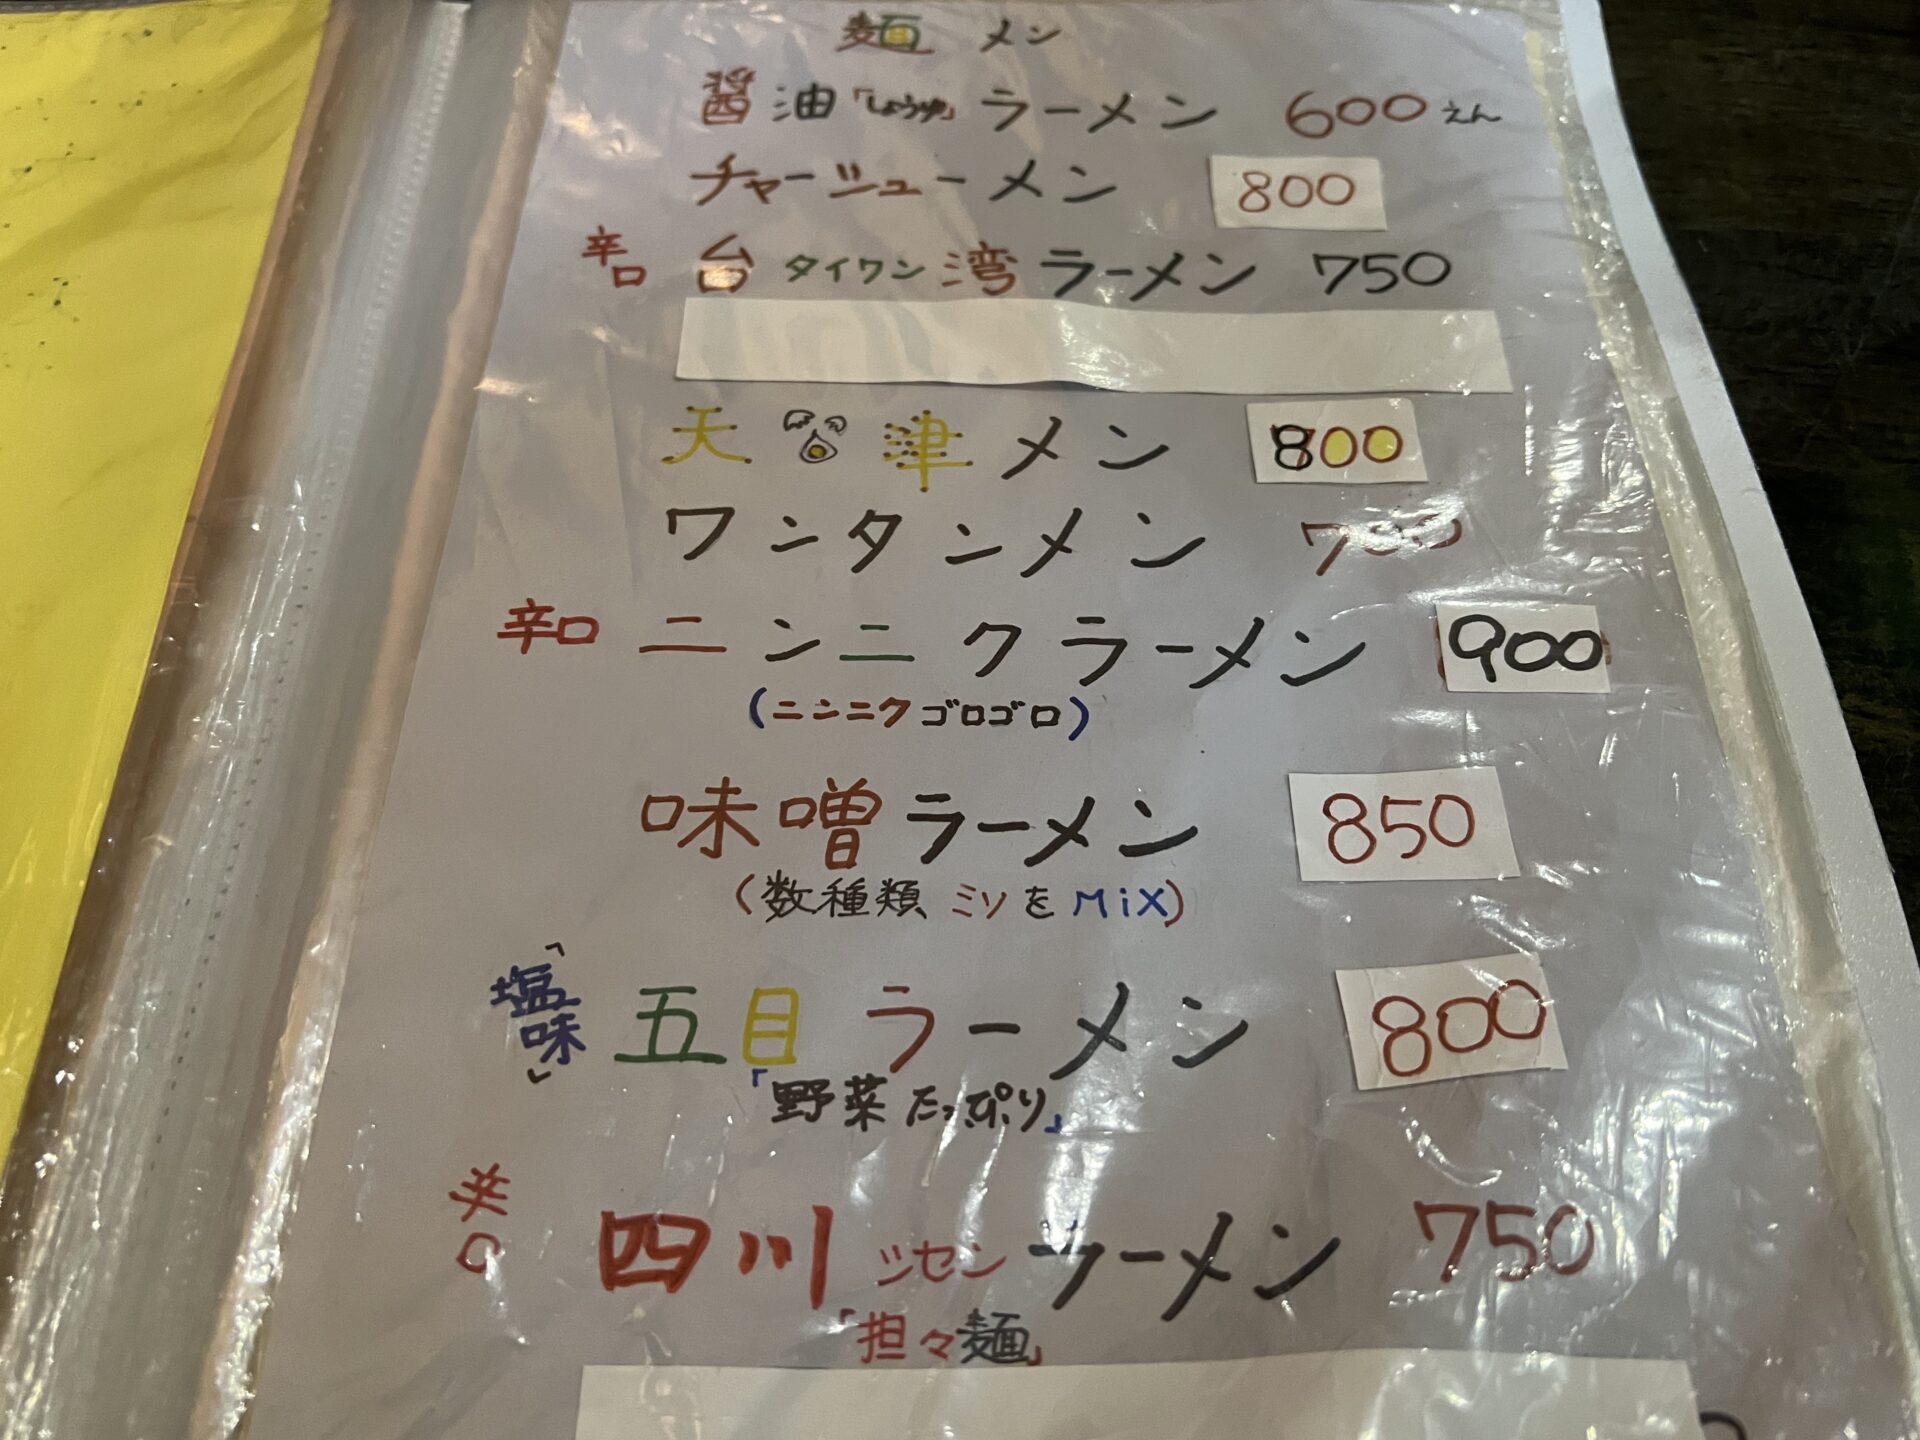 麺 メン
醤油「しょうゆ」ラーメン 600えん
チャーシューメン 800
辛口 台タイワン湾ラーメン 750
天津メン 800
ワンタンメン 700
辛口 ニンニクラーメン 900
(ニンニクゴロゴロ)
味噌ラーメン 850
(数種類ミソをMiX)
「塩味」五目ラーメン 800
「野菜たっぷり」
辛口 四川シセンラーメン 750
「担々麺」